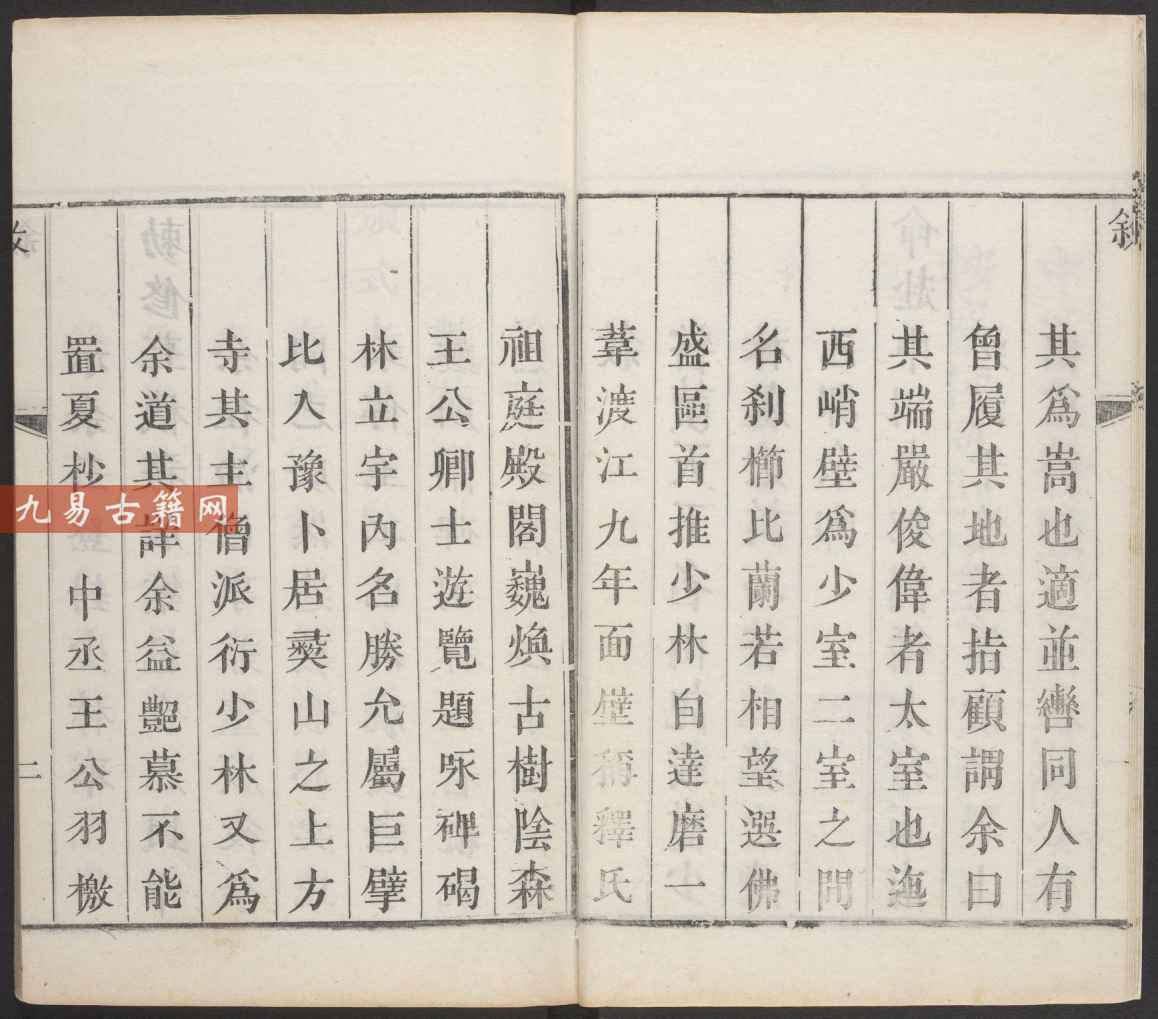 敘
其爲嵩也適並轡同人有
曾履其地者指顧謂余曰
其端嚴俊偉者太室也迤
西峭壁爲少室二室之間
名刹櫛比蘭若相望選佛
盛區首推少林自達磨一
葦渡江九年面壁稱釋氏
祖庭殿閣巍煥古樹陰森
王公卿士遊覽題咏碑碣
林立宇內名勝允屬巨擘
比入豫卜居爽山之上方
寺其主僧派衍少林又爲
余道其詳余益艷慕不能
置夏杪 中丞王公羽檄
二
九易古籍网